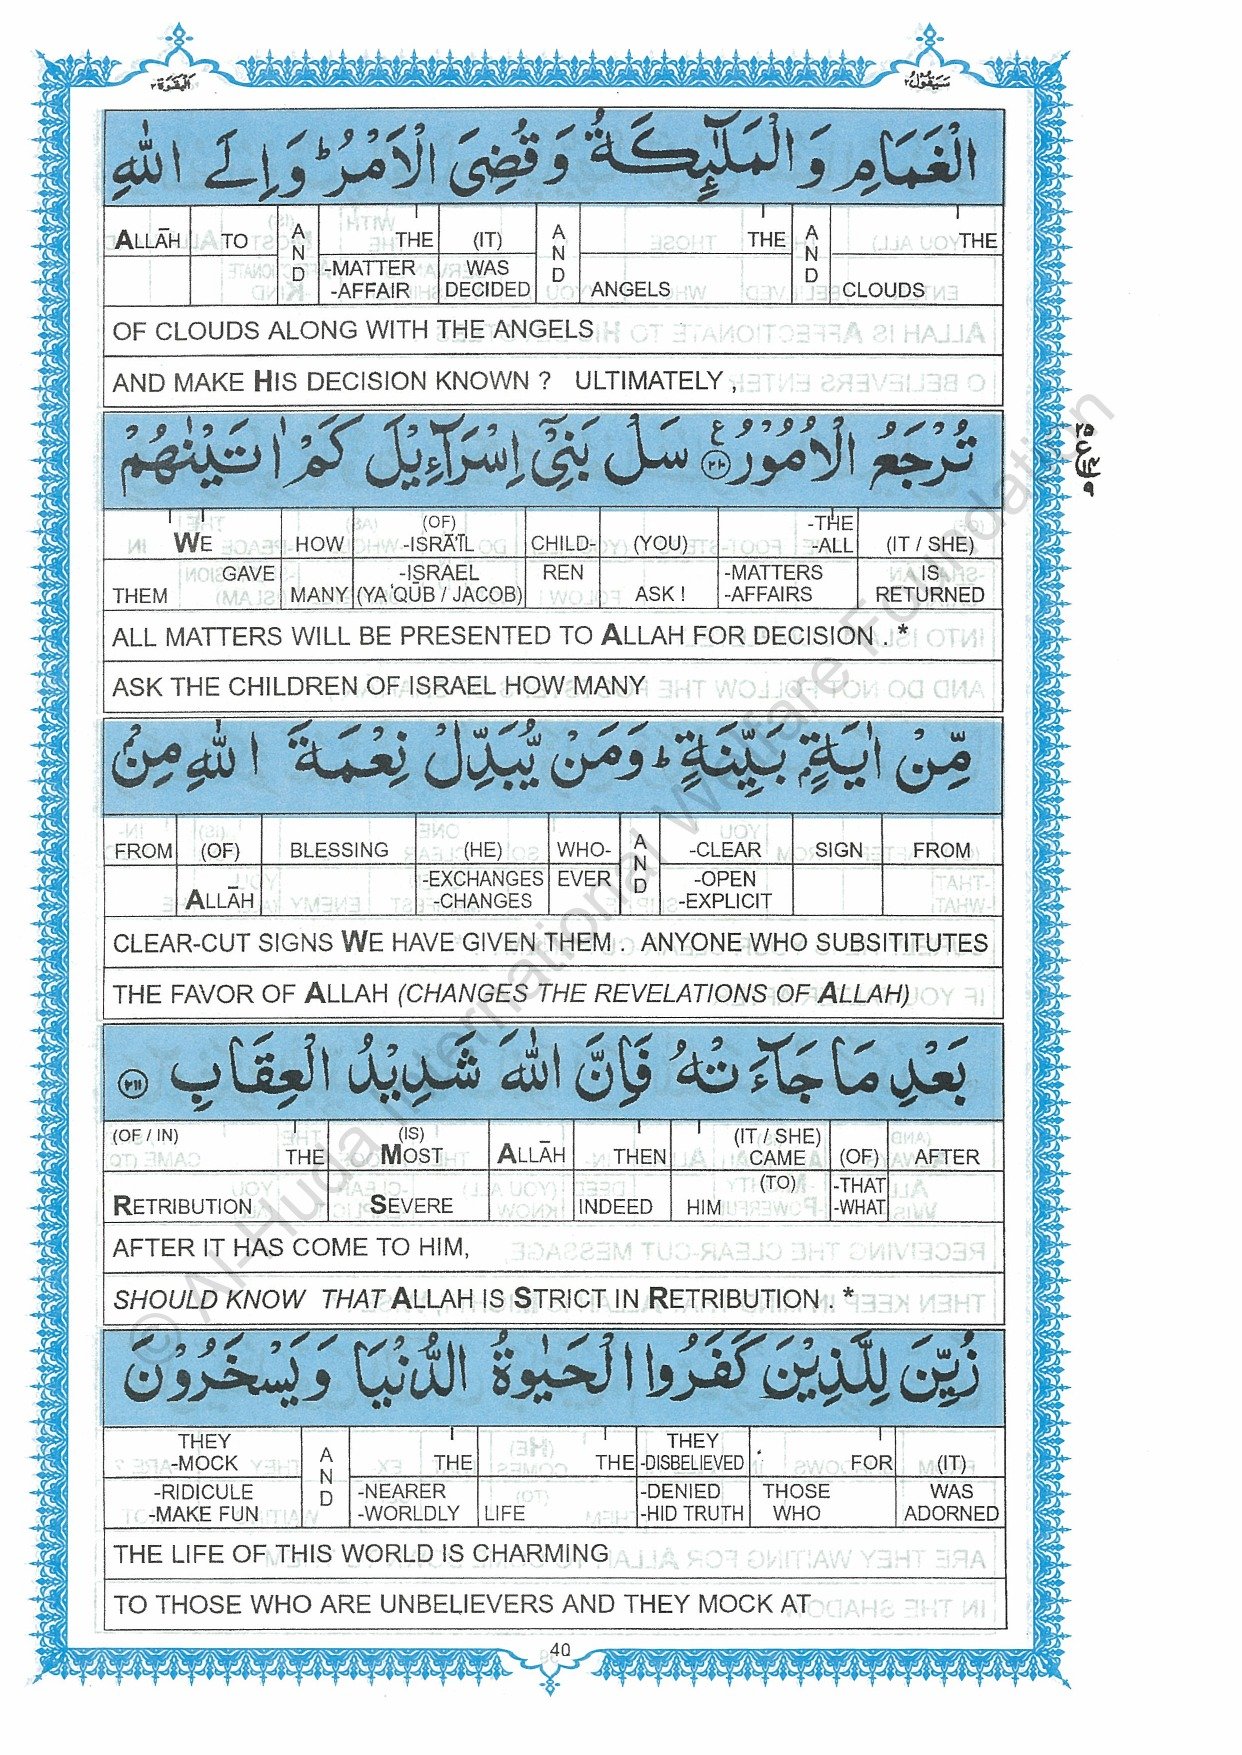 البقرة ٢
سيقول ٢
الْغَمَامِ وَالْمَلٰٓئِكَةُ وَقُضِىَ الْاَمْرُ ؕ وَاِلَى اللّٰهِ
ALLĀH TO AND THE (IT) AND THE AND THE
-MATTER WAS ANGELS CLOUDS
-AFFAIR DECIDED
OF CLOUDS ALONG WITH THE ANGELS
AND MAKE HIS DECISION KNOWN ? ULTIMATELY ,
تُرْجَعُ الْاُمُوْرُ ﴿۲۱۰﴾ ع سَلْ بَنِىْٓ اِسْرَآءِيْلَ كَمْ اٰتَيْنٰهُمْ
(OF) -THE
WE HOW -ISRĀ'ĪL CHILD- (YOU) -ALL (IT / SHE)
GAVE -ISRAEL REN -MATTERS IS
THEM MANY (YA'QŪB / JACOB) ASK ! -AFFAIRS RETURNED
ALL MATTERS WILL BE PRESENTED TO ALLAH FOR DECISION . *
ASK THE CHILDREN OF ISRAEL HOW MANY
مِّنْ اٰيَةٍۭ بَيِّنَةٍ ؕ وَمَنْ يُّبَدِّلْ نِعْمَةَ اللّٰهِ مِنْۢ
FROM (OF) BLESSING (HE) WHO- AND -CLEAR SIGN FROM
-EXCHANGES EVER -OPEN
ALLĀH -CHANGES -EXPLICIT
CLEAR-CUT SIGNS WE HAVE GIVEN THEM . ANYONE WHO SUBSITITUTES
THE FAVOR OF ALLAH (CHANGES THE REVELATIONS OF ALLAH)
بَعْدِ مَا جَآءَتْهُ فَاِنَّ اللّٰهَ شَدِيْدُ الْعِقَابِ ﴿۲۱۱﴾
(OF / IN) (IS) (IT / SHE)
THE MOST ALLĀH THEN CAME (OF) AFTER
(TO) -THAT
RETRIBUTION SEVERE INDEED HIM -WHAT
AFTER IT HAS COME TO HIM,
SHOULD KNOW THAT ALLAH IS STRICT IN RETRIBUTION . *
زُيِّنَ لِلَّذِيْنَ كَفَرُوا الْحَيٰوةُ الدُّنْيَا وَيَسْخَرُوْنَ
THEY THEY
-MOCK AND THE THE -DISBELIEVED FOR (IT)
-RIDICULE -NEARER -DENIED THOSE WAS
-MAKE FUN -WORLDLY LIFE -HID TRUTH WHO ADORNED
THE LIFE OF THIS WORLD IS CHARMING
TO THOSE WHO ARE UNBELIEVERS AND THEY MOCK AT
40
© Al-Huda International Welfare Foundation